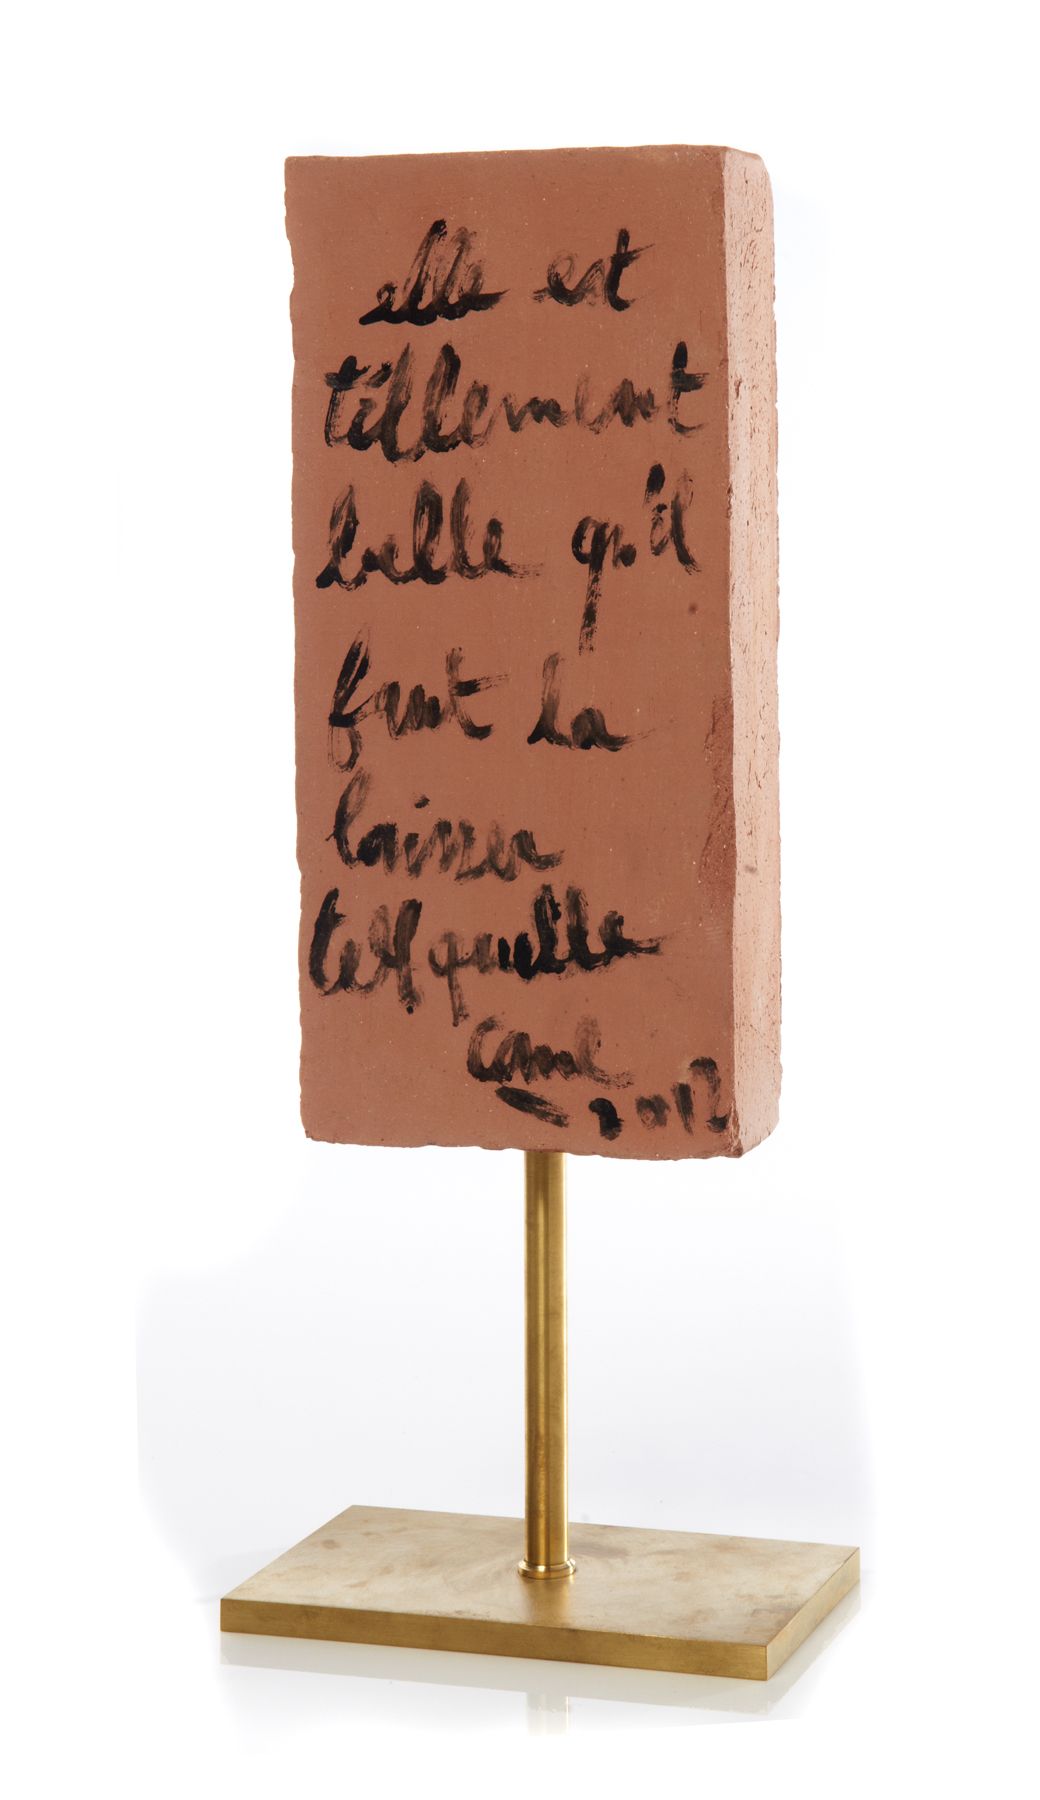 elle est
tellement
belle qu'il
faut la
laisser
tell quelle
Cane
2012